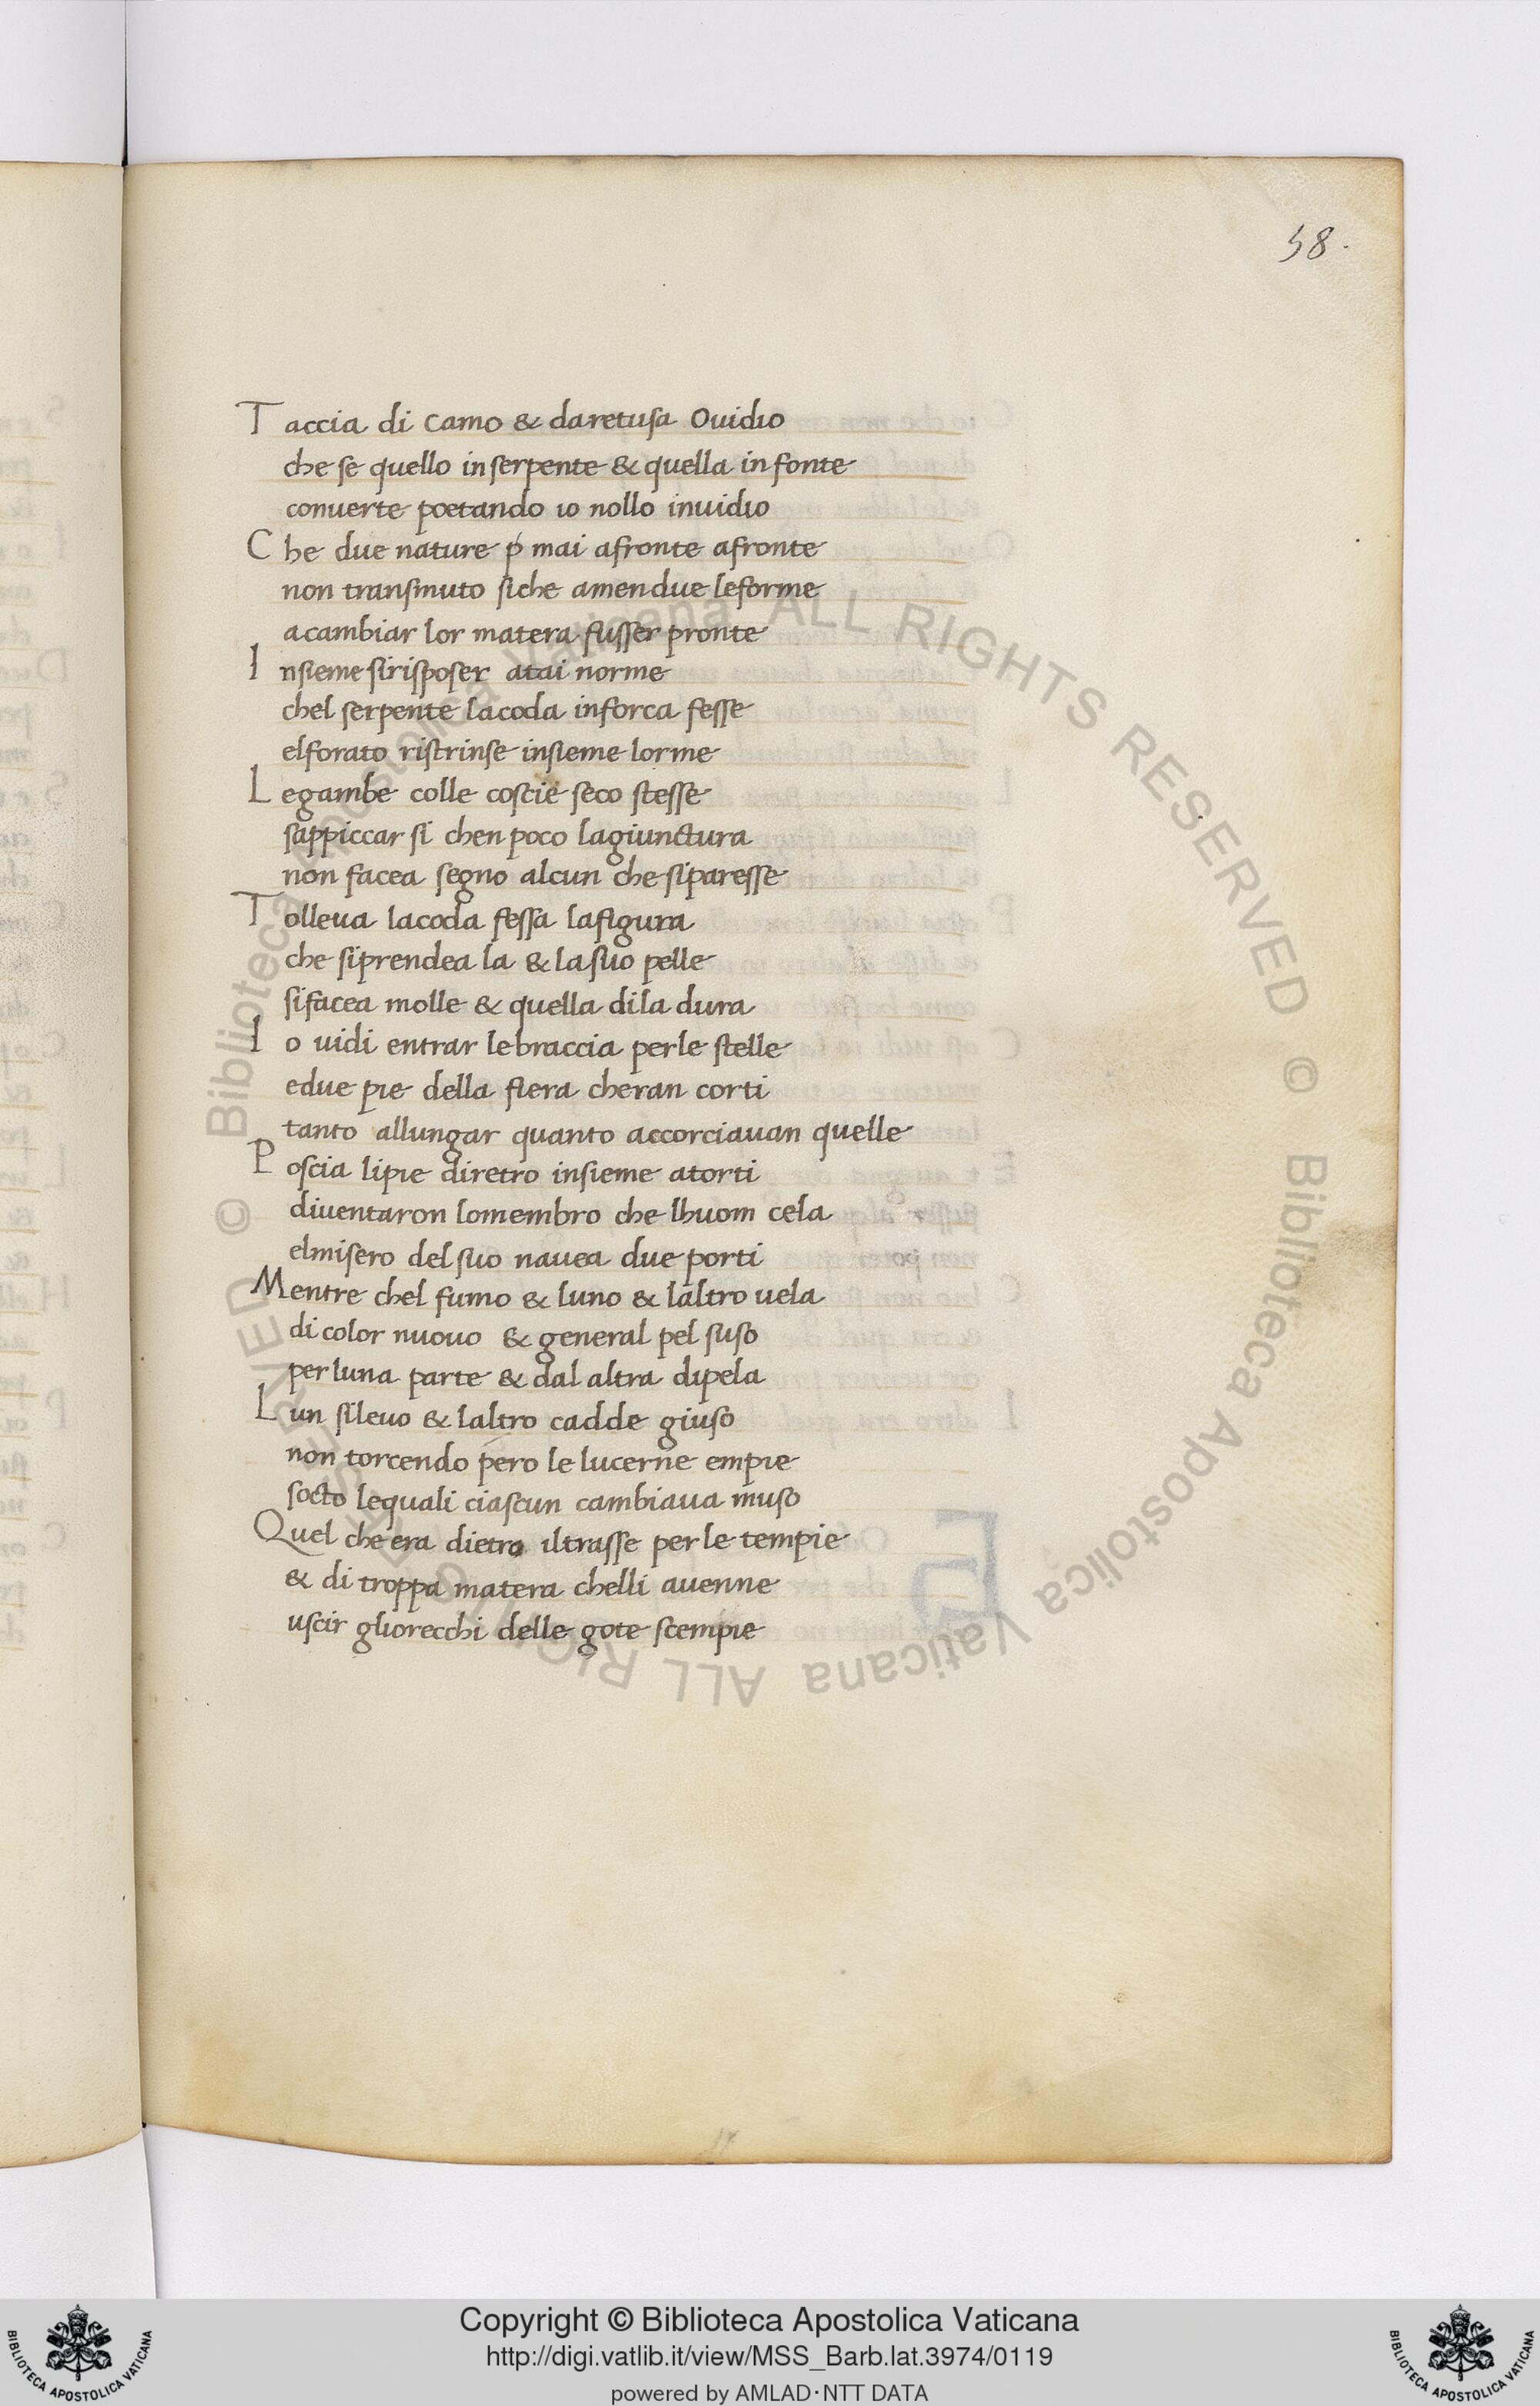 58.
Taccia di camo & daretusa Ouidio
che se quello inserpente & quella in fonte
conuerte poetando io nollo inuidio
Che due nature ꝑ mai afronte afronte
non transmuto siche amendue leforme
acambiar lor matera fusser pronte
Insieme sirisposer atai norme
chel serpente lacoda inforca fesse
elforato ristrinse insieme lorme
Legambe colle coscie seco stesse
sappiccar si chen poco lagiunctura
non facea segno alcun che siparesse
Tolleua lacoda fessa lafigura
che siprendea la & lasuo pelle
sifacea molle & quella dila dura
Io uidi entrar lebraccia perle stelle
edue pie della fiera cheran corti
tanto allungar quanto accorciauan quelle
Poscia lipie diretro insieme atorti
diuentaron lomembro che lhuom cela
elmisero del suo nauea due porti
Mentre chel fumo & luno & laltro uela
di color nuouo & general pel suso
perluna parte & dal altra dipela
Lun sileuo & laltro cadde giuso
non torcendo pero le lucerne empie
socto lequali ciascun cambiaua muso
Quel che era dietro iltrasse perle tempie
& di troppa matera chelli auenne
uscir gliorecchi delle gote scempie
© Biblioteca Apostolica Vaticana ALL RIGHTS RESERVED © Biblioteca Apostolica Vaticana ALL RIGHTS RESERVED
Copyright © Biblioteca Apostolica Vaticana
http://digi.vatlib.it/view/MSS_Barb.lat.3974/0119
powered by AMLAD·NTT DATA
BIBLIOTECA APOSTOLICA VATICANA
BIBLIOTECA APOSTOLICA VATICANA